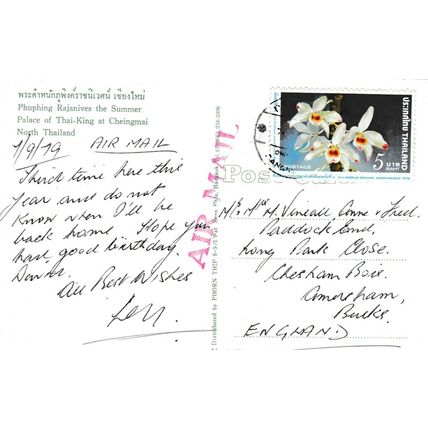 พระตำหนักภูพิงค์ราชนิเวศน์ เชียงใหม่
Phuphing Rajanives the Summer
Palace of Thai-King at Cheingmai
North Thailand
1/9/79 AIR MAIL
Third time here this
year and do not
know when I'll be
back home. Hope you
had good birthday
All Best Wishes
Len
AIR MAIL
Distributed by PHORN THIP
Post Card
ประเทศไทย THAILAND
5
POSTAGE
Mr & Mrs M. Vineall Anne & Fred.
Paddock land.
Long Park Close.
Chesham Bois.
Amersham,
Bucks.
ENGLAND